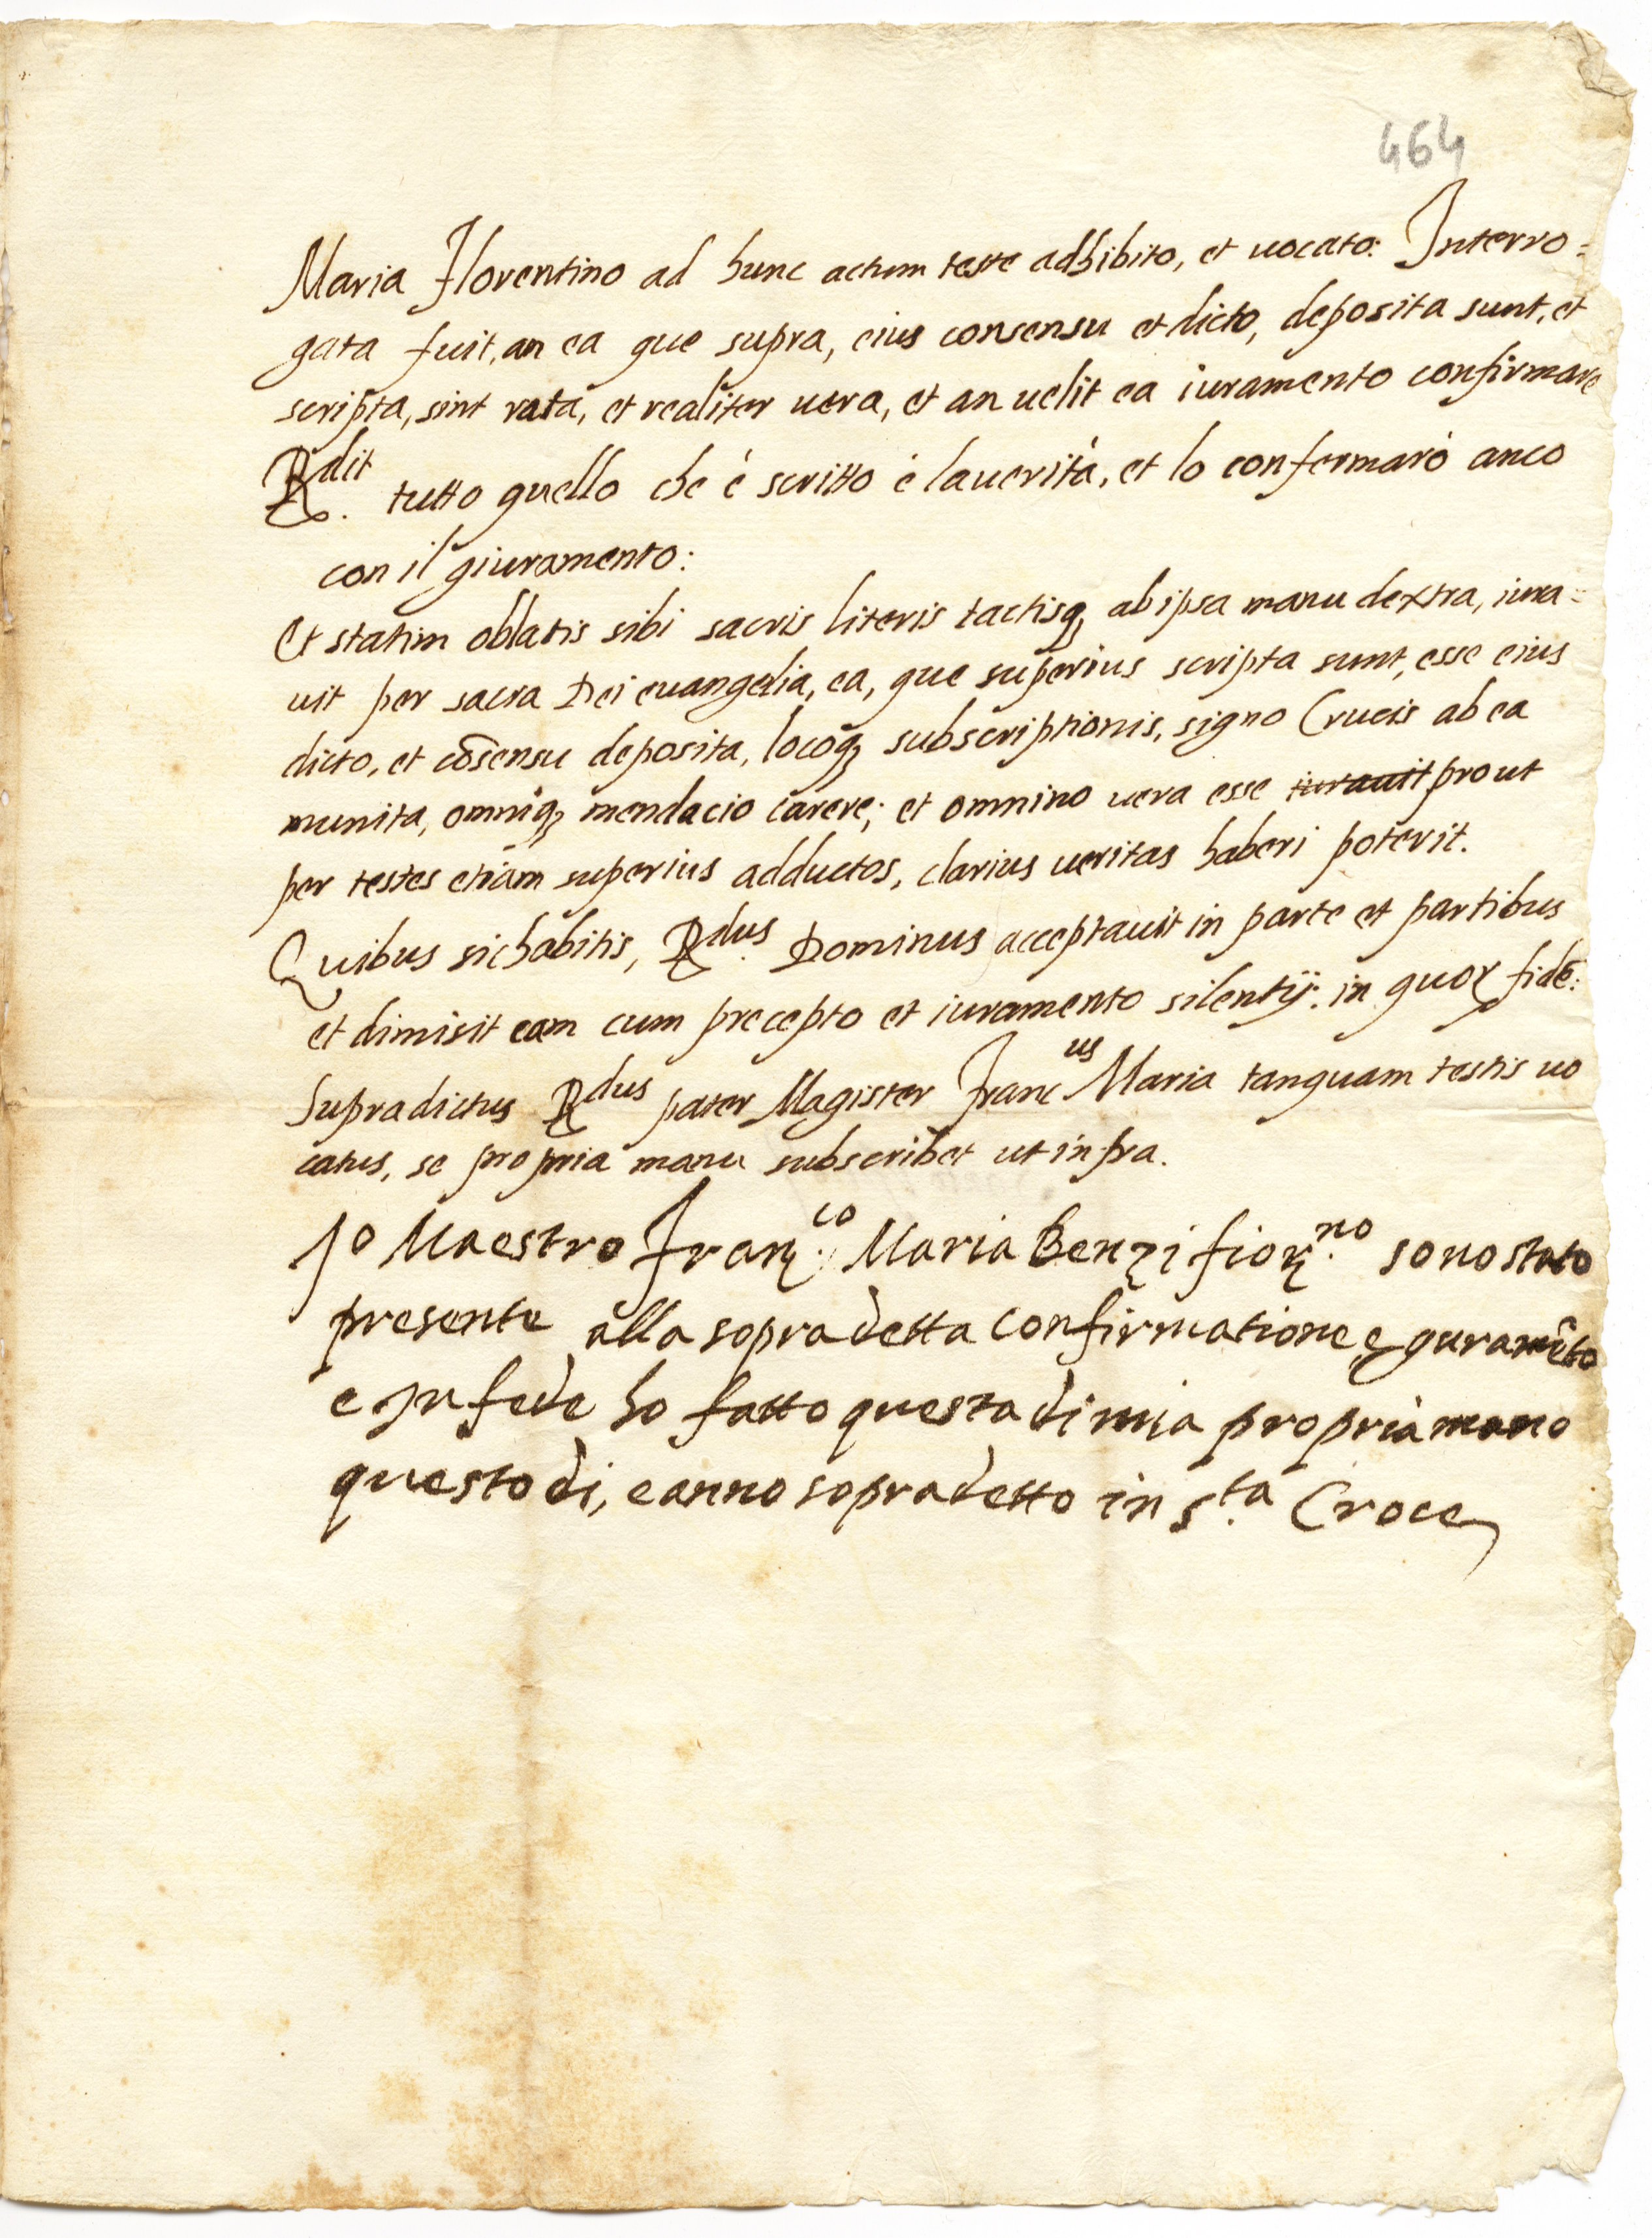 464
Maria Florentino ad hunc actum teste adhibito, et uocato: Interro=
gata fuit, an ea que supra, eius consensu et dicto, deposita sunt, et
scripta, sint rata, et realiter uera, et an uelit ea iuramento confirmare
Rdit. tutto quello che è scritto è lauerità, et lo confermarò anco
con il giuramento:
Et statim oblatis sibi sacris literis tactisq; ab ipsa manu dextra, iura=
uit per sacra Dei euangelia, ea, que superius scripta sunt, esse eius
dicto, et cõsensu deposita, locoq; subscriptionis, signo Crucis ab ea
munita, omniq; mendacio carere; et omnino uera esse iurauit prout
per testes etiam superius adductos, clarius ueritas haberi poterit.
Quibus sic habitis, Rdus. Dominus acceptauit in parte et partibus
et dimisit eam cum precepto et iuramento silentij: in quoꝝ fidẽ:
Supradictus Rdus pater Magister Francus Maria tanquam testis uo
catus, se propria manu subscribet ut infra.
Jo Maestro Franco. Maria Benzi fiorno. sono stato
presente alla sopradetta confirmatione e guramẽto
e In fede ho fatto questa di mia propria mano
questo di, e anno sopradetto in Sta. Croce